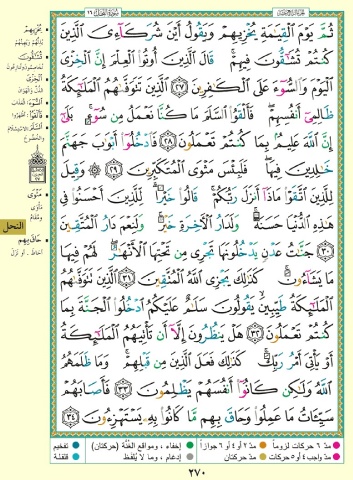 سُورَةُ النَّحْلِ ١٦
ثُمَّ يَوْمَ ٱلْقِيَٰمَةِ يُخْزِيهِمْ وَيَقُولُ أَيْنَ شُرَكَآءِىَ ٱلَّذِينَ
كُنتُمْ تُشَٰٓقُّونَ فِيهِمْ ۚ قَالَ ٱلَّذِينَ أُوتُوا۟ ٱلْعِلْمَ إِنَّ ٱلْخِزْىَ
ٱلْيَوْمَ وَٱلسُّوٓءَ عَلَى ٱلْكَٰفِرِينَ ٢٧ ٱلَّذِينَ تَتَوَفَّىٰهُمُ ٱلْمَلَٰٓئِكَةُ
ظَالِمِىٓ أَنفُسِهِمْ ۖ فَأَلْقَوُا۟ ٱلسَّلَمَ مَا كُنَّا نَعْمَلُ مِن سُوٓءٍۭ ۚ بَلَىٰٓ
إِنَّ ٱللَّهَ عَلِيمٌۢ بِمَا كُنتُمْ تَعْمَلُونَ ٢٨ فَٱدْخُلُوٓا۟ أَبْوَٰبَ جَهَنَّمَ
خَٰلِدِينَ فِيهَا ۖ فَلَبِئْسَ مَثْوَى ٱلْمُتَكَبِّرِينَ ٢٩ ۞ وَقِيلَ
لِلَّذِينَ ٱتَّقَوْا۟ مَاذَآ أَنزَلَ رَبُّكُمْ ۚ قَالُوا۟ خَيْرًا ۗ لِّلَّذِينَ أَحْسَنُوا۟ فِى
هَٰذِهِ ٱلدُّنْيَا حَسَنَةٌ ۚ وَلَدَارُ ٱلْءَاخِرَةِ خَيْرٌ ۚ وَلَنِعْمَ دَارُ ٱلْمُتَّقِينَ
٣٠ جَنَّٰتُ عَدْنٍ يَدْخُلُونَهَا تَجْرِى مِن تَحْتِهَا ٱلْأَنْهَٰرُ ۖ لَهُمْ فِيهَا
مَا يَشَآءُونَ ۚ كَذَٰلِكَ يَجْزِى ٱللَّهُ ٱلْمُتَّقِينَ ٣١ ٱلَّذِينَ تَتَوَفَّىٰهُمُ
ٱلْمَلَٰٓئِكَةُ طَيِّبِينَ ۙ يَقُولُونَ سَلَٰمٌ عَلَيْكُمُ ٱدْخُلُوا۟ ٱلْجَنَّةَ بِمَا
كُنتُمْ تَعْمَلُونَ ٣٢ هَلْ يَنظُرُونَ إِلَّآ أَن تَأْتِيَهُمُ ٱلْمَلَٰٓئِكَةُ
أَوْ يَأْتِىَ أَمْرُ رَبِّكَ ۚ كَذَٰلِكَ فَعَلَ ٱلَّذِينَ مِن قَبْلِهِمْ ۚ وَمَا ظَلَمَهُمُ
ٱللَّهُ وَلَٰكِن كَانُوٓا۟ أَنفُسَهُمْ يَظْلِمُونَ ٣٣ فَأَصَابَهُمْ
سَيِّـَٔاتُ مَا عَمِلُوا۟ وَحَاقَ بِهِم مَّا كَانُوا۟ بِهِۦ يَسْتَهْزِءُونَ ٣٤
يُخْزِيهِمْ
تُشَاقُّونَ
الْخِزْيَ
السُّوءَ
السَّلَمَ
مَثْوَى
مَأْوَى
حَاقَ بِهِمْ
النحل
مدّ ٦ حركات لزوماً
مدّ ٢ أو ٤ أو ٦ جوازاً
إخفاء، ومواقع الغُنَّة (حركتان)
تفخيم
مدّ واجب ٤ أو ٥ حركات
مدّ حركتان
إدغام، وما لا يُلفَظ
قلقلة
٢٧٠